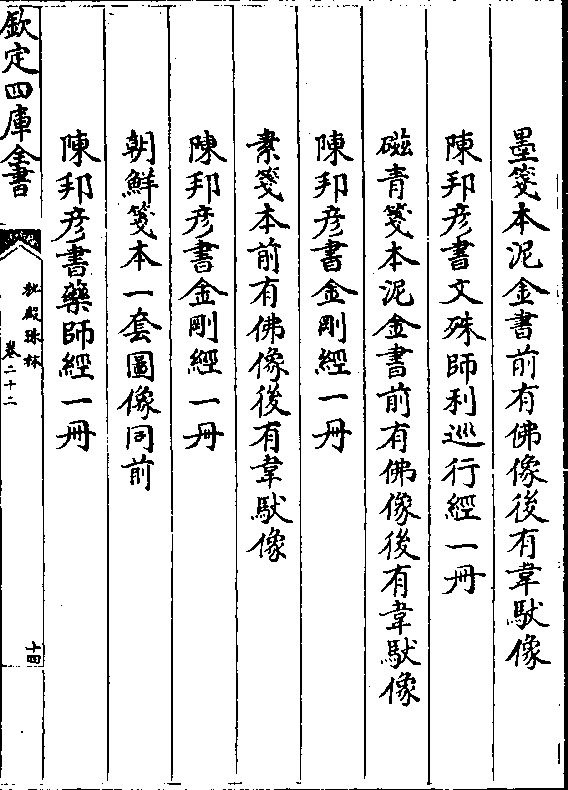 墨箋本泥金書前有佛像後有韋馱像
陳邦彦書文殊師利巡行經一冊
磁青箋本泥金書前有佛像後有韋馱像
陳邦彦書金剛經一冊
素箋本前有佛像後有韋馱像
陳邦彦書金剛經一冊
朝鮮箋本一套圖像同前
陳邦彦書藥師經一冊
欽定四庫全書
祕殿珠林
卷二十二
十四